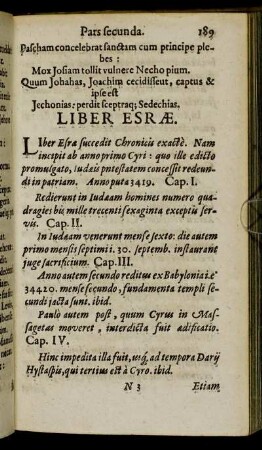 Pars secunda. 189
Pascham concelebrat sanctam cum principe ple-
bes:
Mox Josiam tollit vulnere Necho pium.
Quum Johahas, Joachim cecidisset, captus &
ipse est
Jechonias: perdit sceptraq; Sedechias.
LIBER ESRÆ.
LIber Esræ succedit Chronicis exactè. Nam
incipit ab anno primo Cyri: quo ille edicto
promulgato, iudæis potestatem concessit redeun-
di in patriam. Anno puta 3419. Cap. I.
Redierunt in Iudæam homines numero qua-
dragies bis mille trecenti sexaginta exceptis ser-
vis. Cap. II.
In Iudæam venerunt mense sexto: die autem
primo mensis septimi i. 30. septemb. instaurant
juge sacrificium. Cap. III.
Anno autem secundo reditus ex Babylonia i.e
34420. mense secundo, fundamenta templi se-
cundi jacta sunt. ibid.
Paulò autem post, quum Cyrus in Mas-
sagetas moveret, interdicta fuit ædificatio.
Cap. IV.
Hinc impedita illa fuit, usq; ad tempora Darij
Hystaspis, qui tertius est à Cyro. ibid.
N 3 Etiam